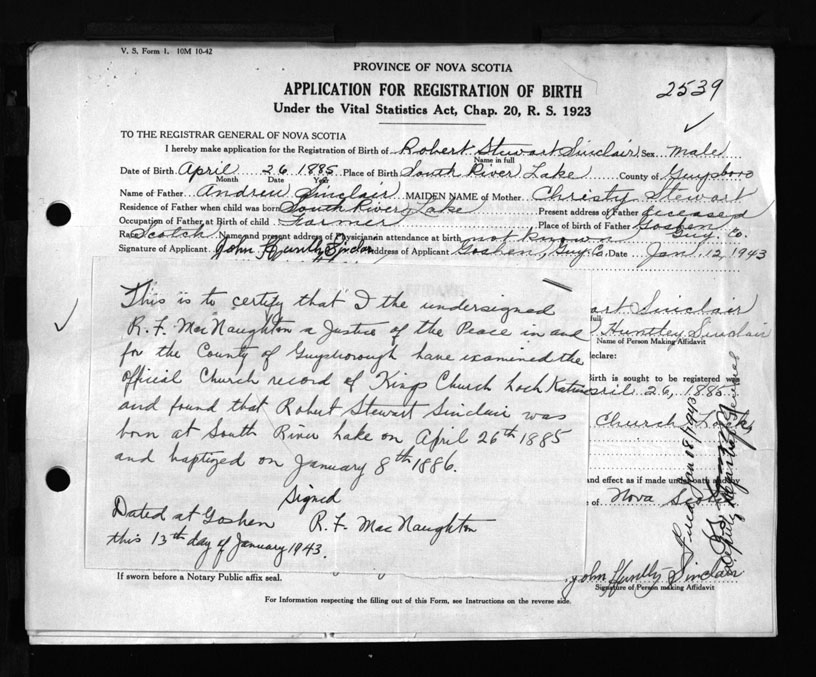 V. S. Form 1. 10M 10-42
PROVINCE OF NOVA SCOTIA
APPLICATION FOR REGISTRATION OF BIRTH
2539
Under the Vital Statistics Act, Chap. 20, R. S. 1923
TO THE REGISTRAR GENERAL OF NOVA SCOTIA
I hereby make application for the Registration of Birth of Robert Stewart Sinclair Sex Male
Name in full
Date of Birth April 26 1885 Place of Birth South River Lake County of Guysboro
Month Date Year
Name of Father Andrew Sinclair MAIDEN NAME of Mother Christy Stewart
Residence of Father when child was born South River Lake Present address of Father deceased
Occupation of Father at Birth of child Farmer Place of Birth of Father Goshen
Guy. Co.
Race Scotch Name and present address of Physician in attendance at birth not known
Signature of Applicant John Huntly Sinclair Address of Applicant Goshen, Guy. Co. Date Jan. 12, 1943
AFFIDAVIT
This is to certify that I the undersigned
R. F. MacNaughton a Justice of the Peace in and
for the County of Guysborough have examined the
Official Church record of Kings Church Loch Katrine
and found that Robert Stewart Sinclair was
born at South River Lake on April 26th 1885
and baptized on January 8th 1886.
Signed
Dated at Goshen R. F. MacNaughton
this 13th day of January 1943.
art Sinclair
full
Huntley Sinclair
Name of Person Making Affidavit
declare:
Birth is sought to be registered was
ril 26, 1885
Church
and effect as if made under oath and by
of Nova Scotia
John Huntly Sinclair
Signature of Person making Affidavit
If sworn before a Notary Public affix seal.
For Information respecting the filling out of this Form, see Instructions on the reverse side.
Jan 18/1943